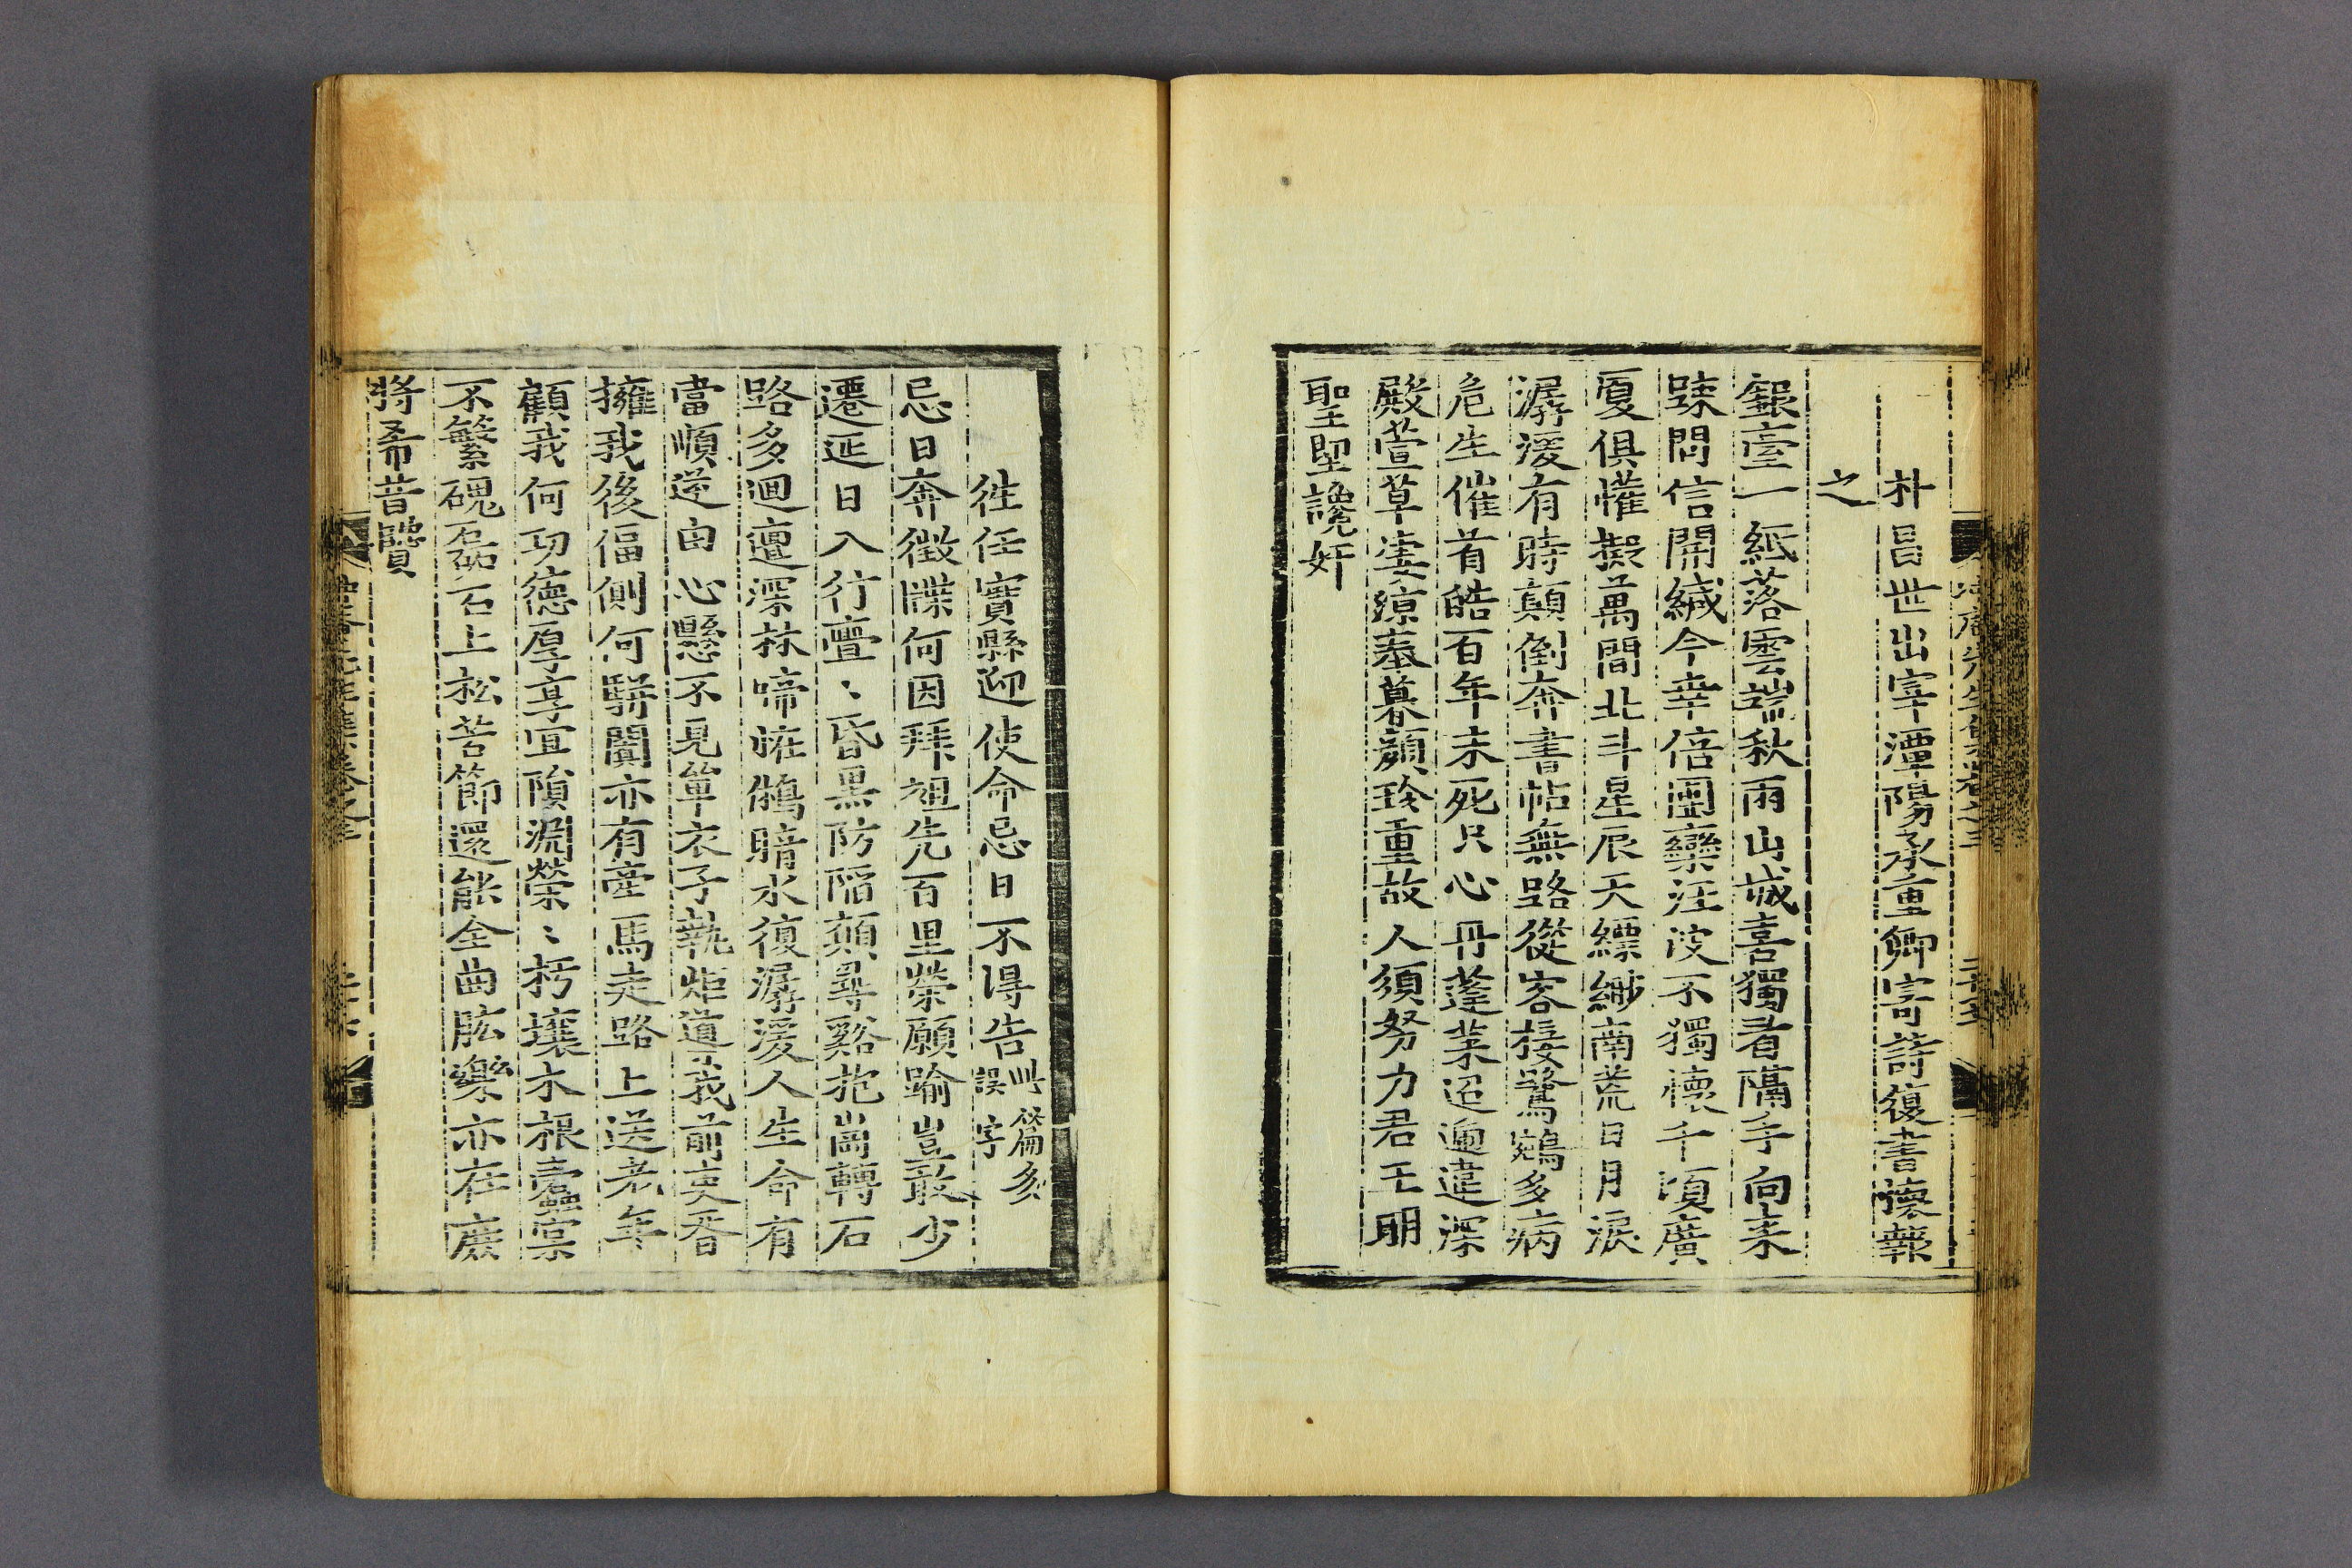 朴昌世出宰潭陽承重卿寄詩復書懷報
之
銀臺一紙落雲端秋雨山城喜獨看隔手向來
踈問信開緘今幸倍團欒汪洋不獨懷千頃廣
厦俱懽擬萬間北斗星辰天縹緲南荒日月淚
潺湲有時顛倒奔書帖無路從容接鷺鵷多病
危生催首皓百年未死只心丹蓬萊迢遞違深
殿萱草凄凉奉暮顔珍重故人須努力君王明
聖堲讒奸
徃任實縣迎使命忌日不得告此篇多
誤字
忌日奔徵牒何因拜祖先百里榮願踰豈敢少
遷延日入行亶〻昏黑防陷顛尋谿抱崗轉石
路多迴邅深林啼怪鵂暗水復潺湲人生命有
當順逆由心懸不見篳衣子執炬導我前吏胥
擁我後偪側何騈闐亦有產馬走路上送老年
顧我何功德厚享宜隕淵榮〻朽壤木根蠹寡
不繁磈磊石上松苦節還能全曲肱樂亦在庶
將希昔賢